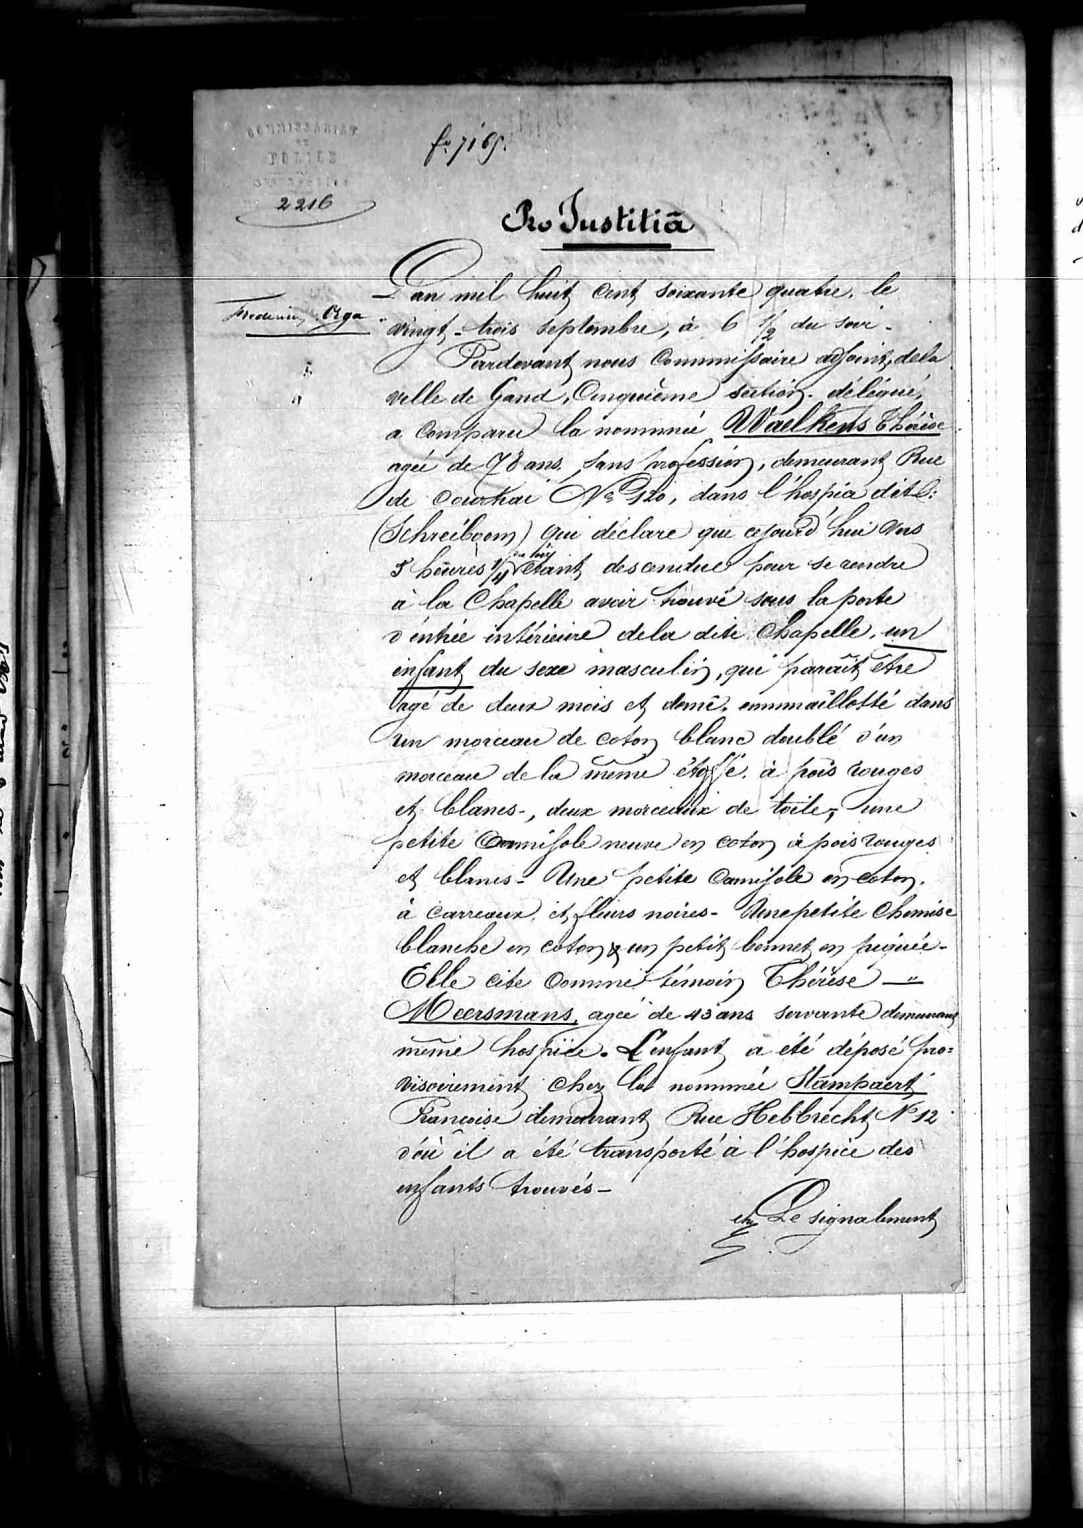 COMMISSARIAT
DE
POLICE
2216
fo 7169.
Pro Justitiā
L'an mil huit cent soixante quatre, le
vingt-trois septembre, à 6 1/2 du soir-
Pardevant nous Commissaire adjoint, dela
ville de Gand, Cinquième section. délégué,
a comparu la nommée Waelkens Thérèse
agée de 78 ans, sans profession, demeurant Rue
de Courtrai No 120, dans l'hospice dit:
(Schreiboom) qui déclare que cejourd'hui vers
5 heures 1/4 étant descendue pour se rendre
à la Chapelle avoir trouvé sous la porte
d'entrée intérieure dela dite Chapelle, un
enfant du sexe masculin, qui paraît être
agé de deux mois et demi, emmaillotté dans
un morceau de coton blanc doublé d'un
morceau de la même étoffe à pois rouges
et blancs-, deux morceaux de toile, une
petite Camisole neuve en coton à pois rouges
et blancs- Une petite Camisole en coton
à carreaux et fleurs noires- Une petite Chemise
blanche en coton & un petit bonnet en piquée-
Elle cite comme témoin Thérèse — "
Meersmans, agée de 43 ans servante demeurant
même hospice. L'enfant a été déposé pro=
visoirement chez la nommée Stampaert
Francoise demeurant Rue Hebbrecht No 12
d'où il a été transporté à l'hospice des
enfants trouvés-
Le signalement
Frédéric, Orga